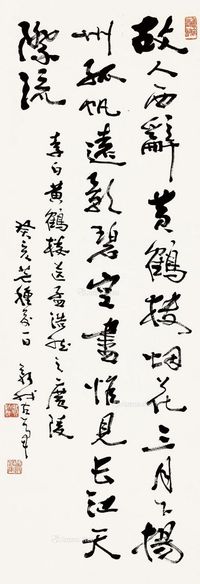 故人西辭黄鶴楼烟花三月下揚
州孤帆遠影碧空盡惟見長江天
際流
李白黄鶴楼送孟浩然之廣陵
癸亥芒種前一日